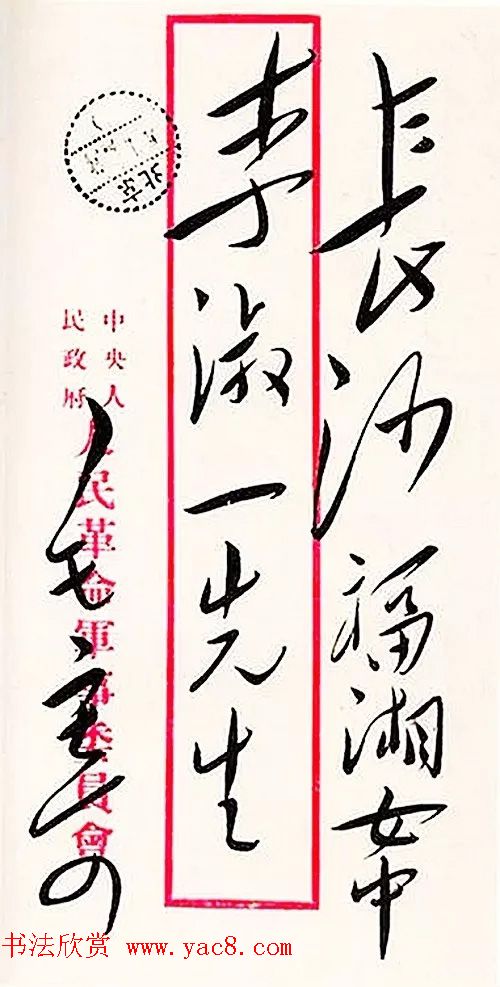 長沙福湘女中
李淑一先生
中央人
民政府
人民革命軍事委員會
北京
书法欣赏 www.yac8.com